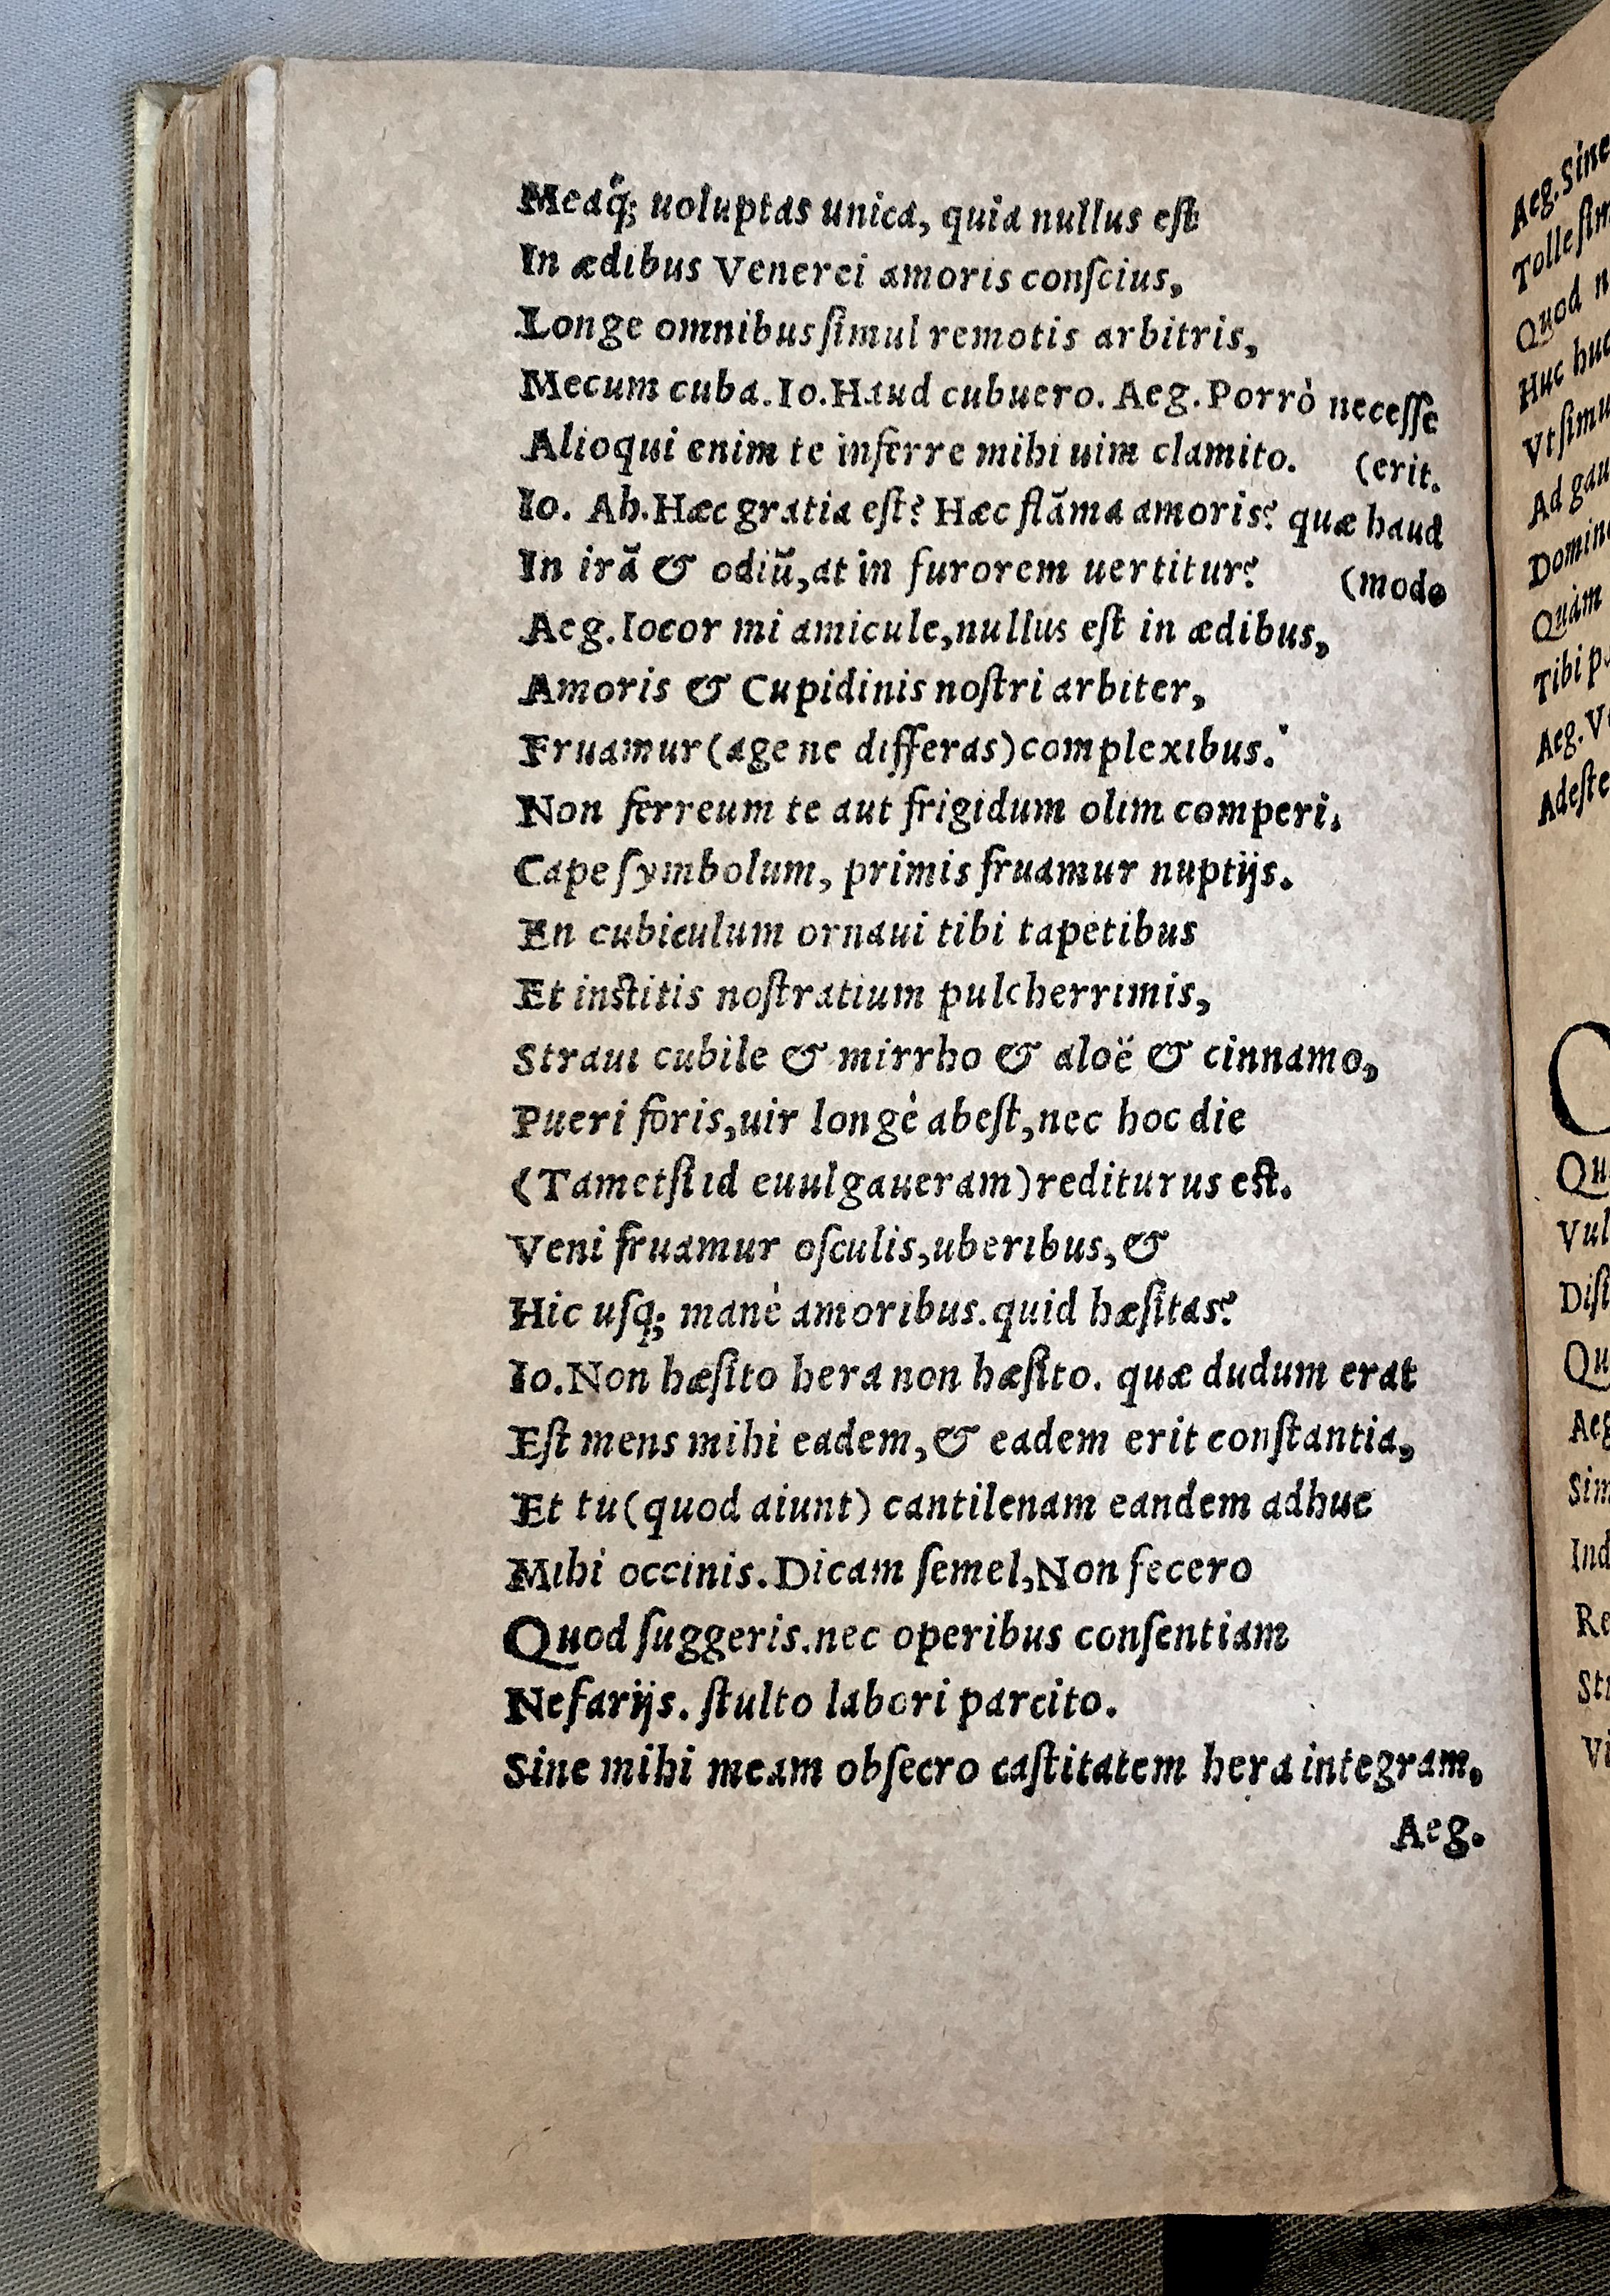 Meaq́; uoluptas unica, quia nullus eſt
In ædibus Venerei amoris conſcius,
Longe omnibus ſimul remotis arbitris,
Mecum cuba. Io. Haud cubuero. Aeg. Porrò neceſſe
Alioqui enim te inferre mihi uim clamito. (erit.
Io. Ah. Hæc gratia eſt? Hæc flãma amoris? quæ haud
In irã & odiũ, at in furorem uertitur? (modo
Aeg. Iocor mi amicule, nullus eſt in ædibus,
Amoris & Cupidinis noſtri arbiter,
Fruamur (age ne differas) complexibus.
Non ferreum te aut frigidum olim comperi,
Cape ſymbolum, primis fruamur nuptijs.
En cubiculum ornaui tibi tapetibus
Et inſtitis noſtratium pulcherrimis,
Straui cubile & mirrho & aloë & cinnamo,
Pueri foris, uir longè abeſt, nec hoc die
(Tametſi id euulgaueram) rediturus eſt.
Veni fruamur oſculis, uberibus, &
Hic uſq; manè amoribus. quid hæſitas?
Io. Non hæſito hera non hæſito. quæ dudum erat
Eſt mens mihi eadem, & eadem erit conſtantia,
Et tu (quod aiunt) cantilenam eandem adhuc
Mihi occinis. Dicam ſemel, Non fecero
Quod ſuggeris. nec operibus conſentiam
Nefarijs. ſtulto labori parcito.
Sine mihi meam obſecro caſtitatem hera integram.
Aeg.
Aeg. Sine
Tolle
Quod
Huc huc
Vt
Ad
Quàm
Tibi
Aeg.